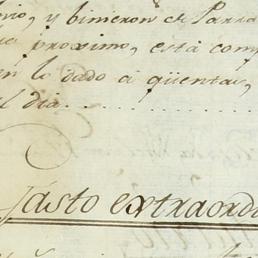 y binieron de Parra
proximo, está comp
en lo dado á qüenta,
l dia
Gasto extraord